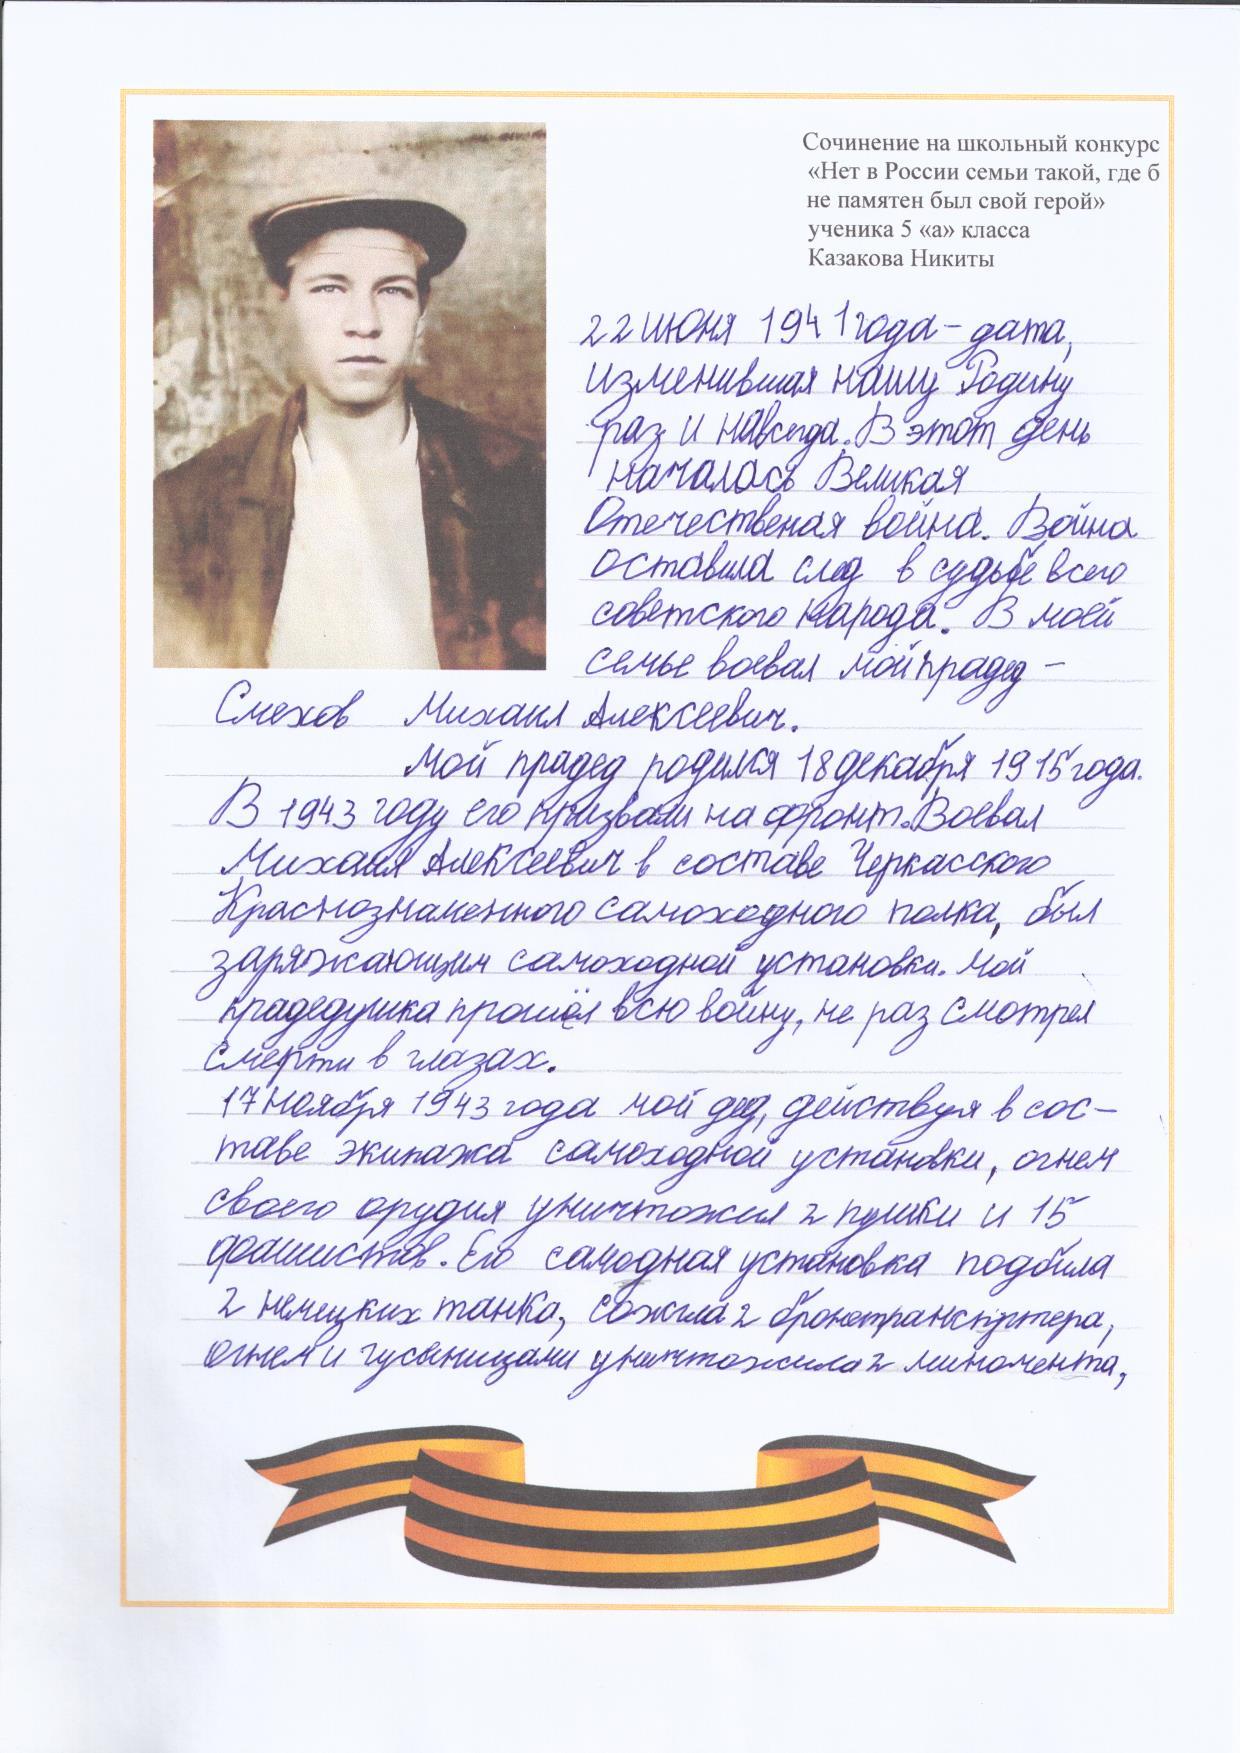 Сочинение на школьный конкурс
«Нет в России семьи такой, где б
не памятен был свой герой»
ученика 5 «а» класса
Казакова Никиты
22 июня 1941 года – дата,
изменившая нашу Родину
раз и навсегда. В этот день
началась Великая
Отечественая война. Война
оставила след в судьбе всего
советского народа. В моей
семье воевал мой прадед –
Смехов Михаил Алексеевич.
Мой прадед родился 18 декабря 1915 года.
В 1943 году его призвали на фронт. Воевал
Михаил Алексеевич в составе Черкасского
Краснознаменного самоходного полка, был
заряжающим самоходной установки. Мой
прадедушка прошёл всю войну, не раз смотрел
смерти в глазах.
17 ноября 1943 года мой дед, действуя в сос–
таве экипажа самоходной установки, огнем
своего орудия уничтожил 2 пушки и 15
фашистов. Его самодная установка подбила
2 немецких танка, сожгла 2 бронетранспортера,
огнем и гусыницами уничтожила 2 миномента,